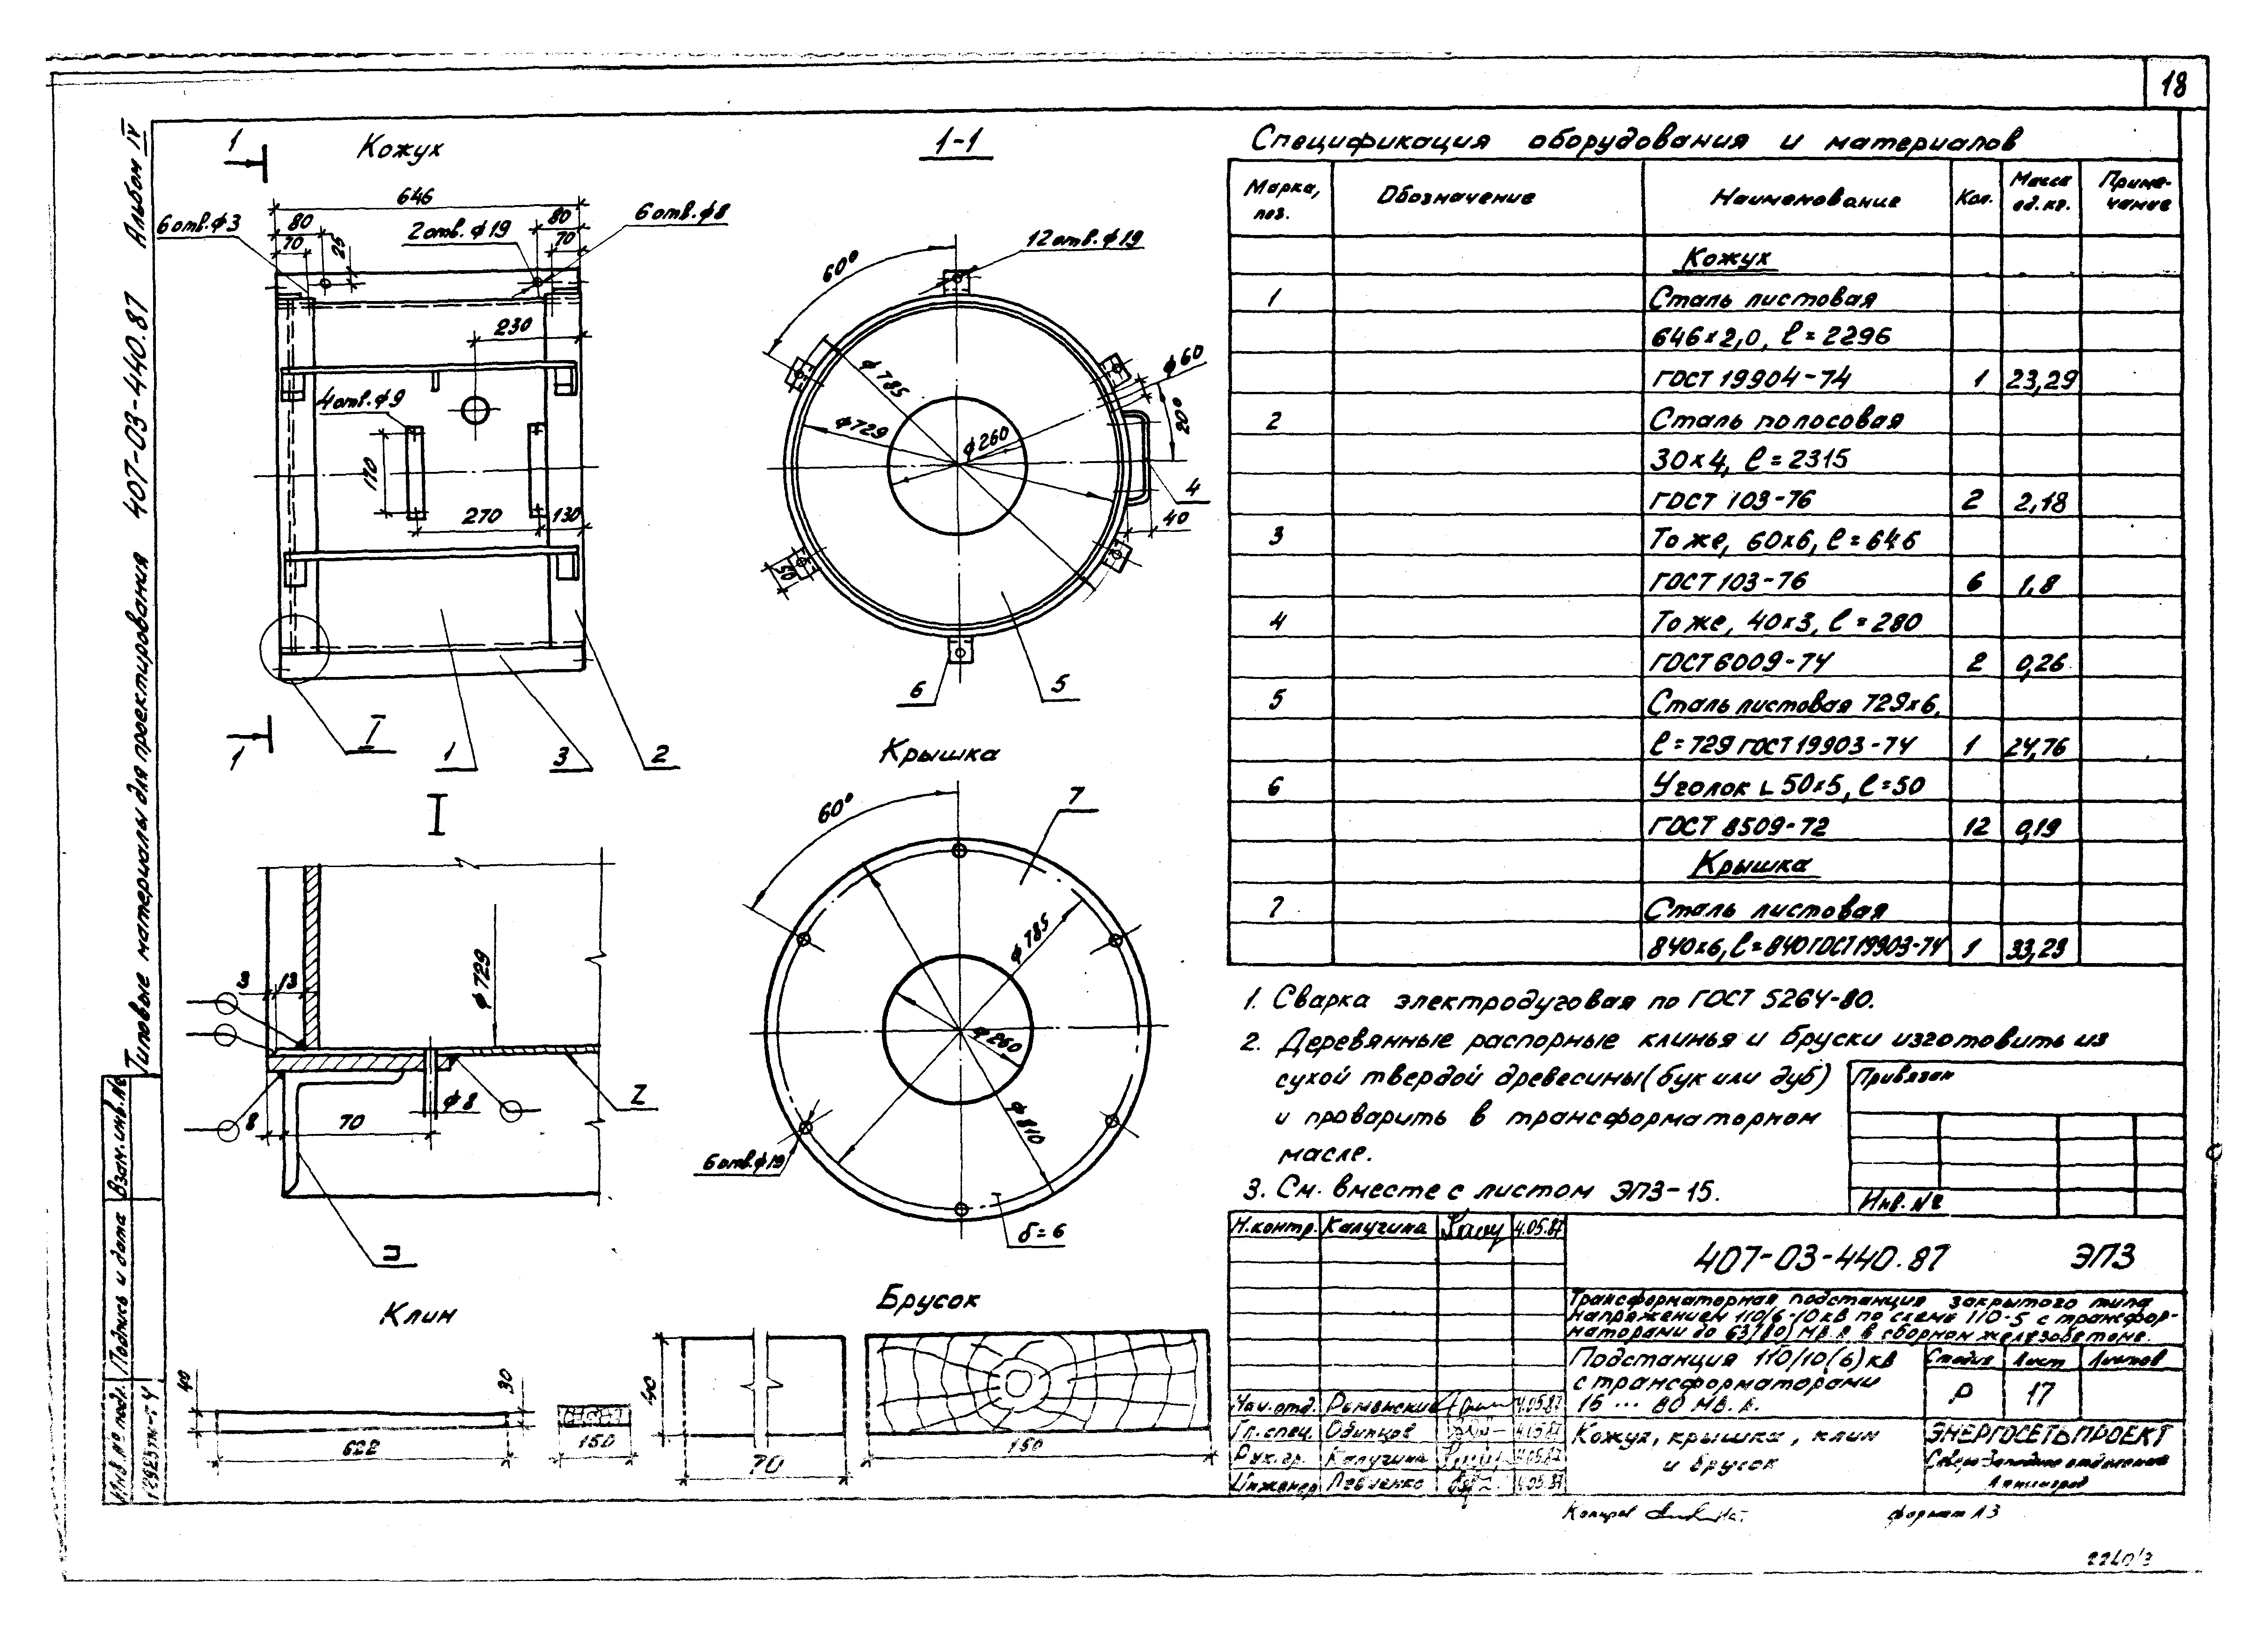 18
Типовые материалы для проектирования 407-03-440.87 Альбом IV
1
Кожух
646
80
80
6 отв. ф3
2 отв. ф19
6 отв. ф8
70
25
70
230
4 отв. ф9
110
270
130
1
I
1
3
2
1-1
12 отв. ф19
60°
ф60
ф785
20°
ф729
ф260
4
40
50
6
5
I
3
13
ф729
8
70
ф8
2
3
Крышка
60°
7
ф785
ф260
ф810
6 отв. ф19
δ=6
Клин
40
30
622
150
Брусок
40
70
150
Спецификация оборудования и материалов
Марка, поз.
Обозначение
Наименование
Кол.
Масса ед. кг.
Примечание
Кожух
1 Сталь листовая
646×2,0, ℓ=2296
ГОСТ 19904-74 1 23,29
2 Сталь полосовая
30×4, ℓ=2315
ГОСТ 103-76 2 2,18
3 То же, 60×6, ℓ=646
ГОСТ 103-76 6 1,8
4 То же, 40×3, ℓ=280
ГОСТ 6009-74 2 0,26
5 Сталь листовая 729×6,
ℓ=729 ГОСТ 19903-74 1 24,76
6 Уголок ∟50×5, ℓ=50
ГОСТ 8509-72 12 0,19
Крышка
7 Сталь листовая
840×6, ℓ=840 ГОСТ 19903-74 1 33,23
1. Сварка электродуговая по ГОСТ 5264-80.
2. Деревянные распорные клинья и бруски изготовить из
сухой твердой древесины (бук или дуб)
и проварить в трансформаторном
масле.
3. См. вместе с листом ЭПЗ-15.
Привязан
Инв. №
Н.контр. Калугина 4.05.87
407-03-440.87 ЭПЗ
Трансформаторная подстанция закрытого типа
напряжением 110/6-10кв по схеме 110-5 с трансфор-
маторами до 63(80) мв.а в сборном железобетоне.
Подстанция 110/10(6)кв
с трансформаторами
16 ... 80 мв.а.
Стадия Лист Листов
Р 17
Нач.отд. 4.05.87
Гл.спец. Одинцов 4.05.87
Рук.гр. Калугина 4.05.87
Инженер Левченко 4.05.87
Кожух, крышка, клин
и брусок
ЭНЕРГОСЕТЬПРОЕКТ
Северо-Западное отделение
Ленинград
Взам.инв.№
Подпись и дата
Инв.№ подл.
Копиров
формат А3